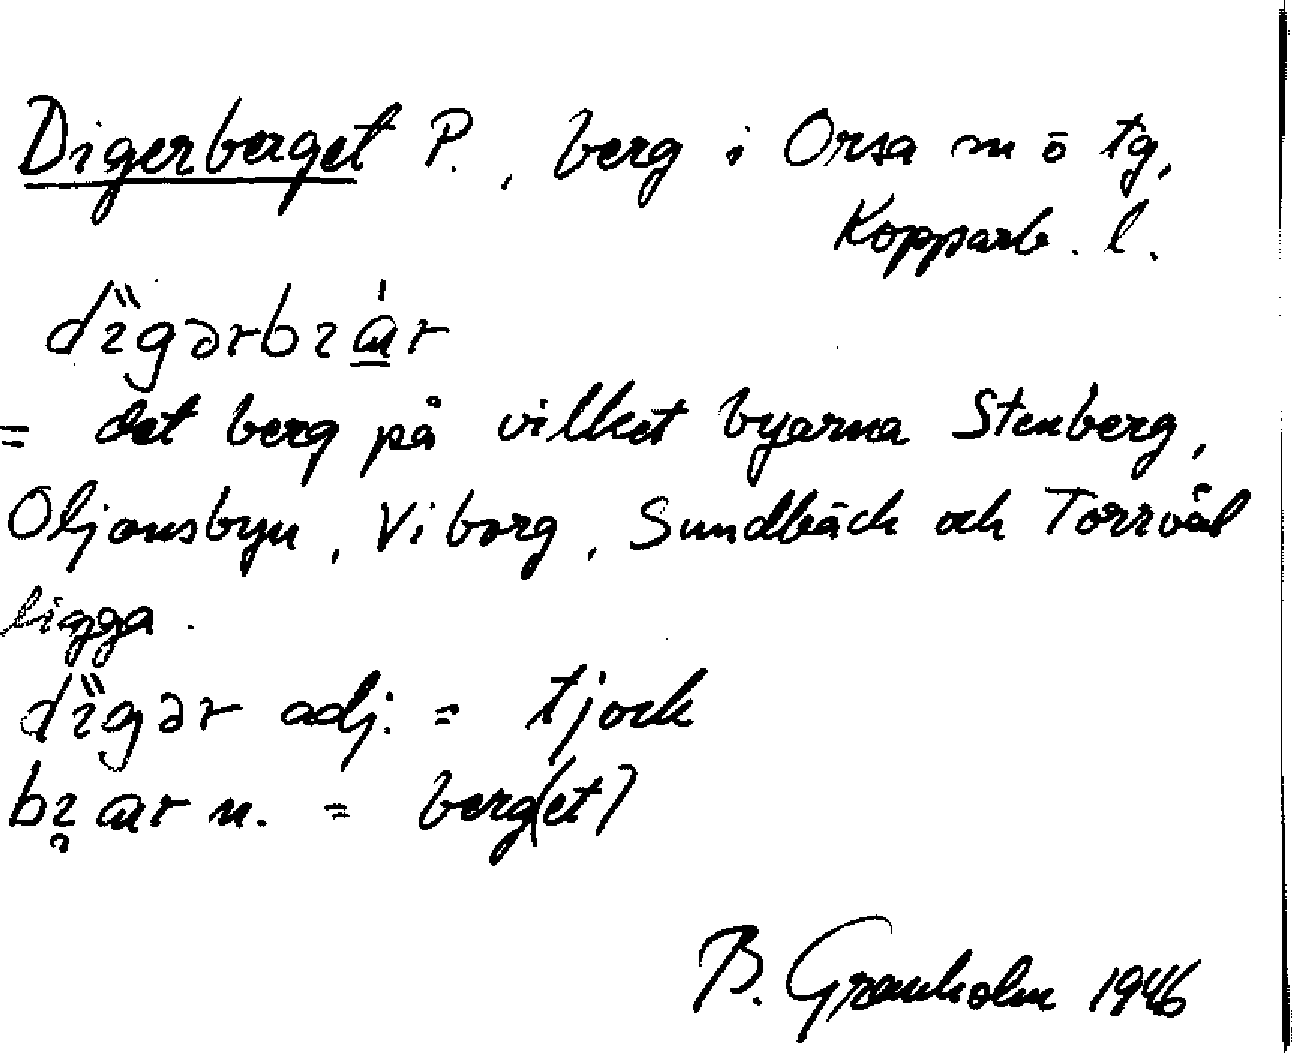 Digerberget P., berg i Orsa m o tg,
Kopparb. l.
= det berg på vilket byarna Stenberg,
Oljonsbyn, Viborg, Sundbäck och Torrvål
ligga.
adj. = tjock
n. = berg(et)
B. Granholm 1946